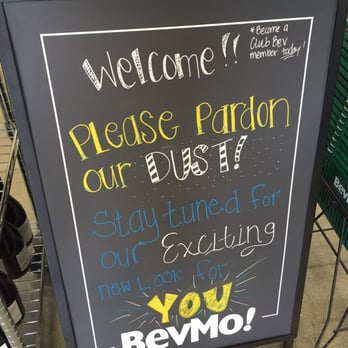 Welcome!!
*Become a
Club Bev
member today!
Please Pardon
our DUST!
Stay tuned for
our Exciting
new Look for
YOU
BevMo!
BevMo